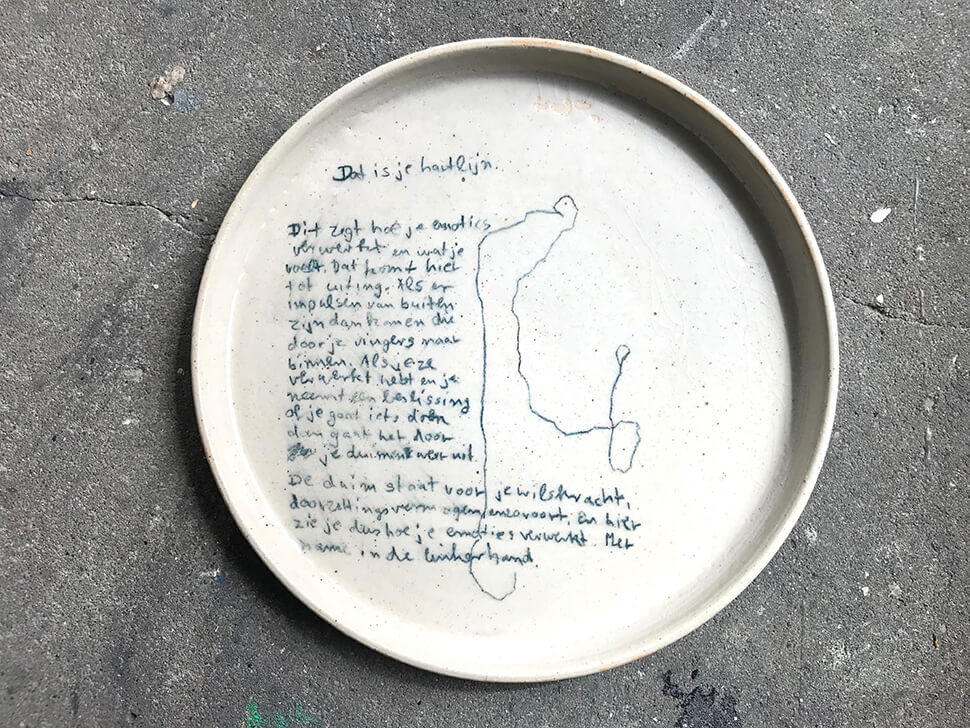 Dat is je hartlijn.
Dit zegt hoe je emoties
verwerkt en wat je
voelt. Dat komt hier
tot uiting. Als er
impulsen van buiten
zijn dan komen die
door je vingers naar
binnen. Als je ze
verwerkt hebt en je
neemt een beslissing
of je gaat iets doen
dan gaat het door
je duimen weer uit.
De duim staat voor je wilskracht,
doorzettingsvermogen enzovoort. En hier
zie je dus hoe je emoties verwerkt. Met
name in de linkerhand.